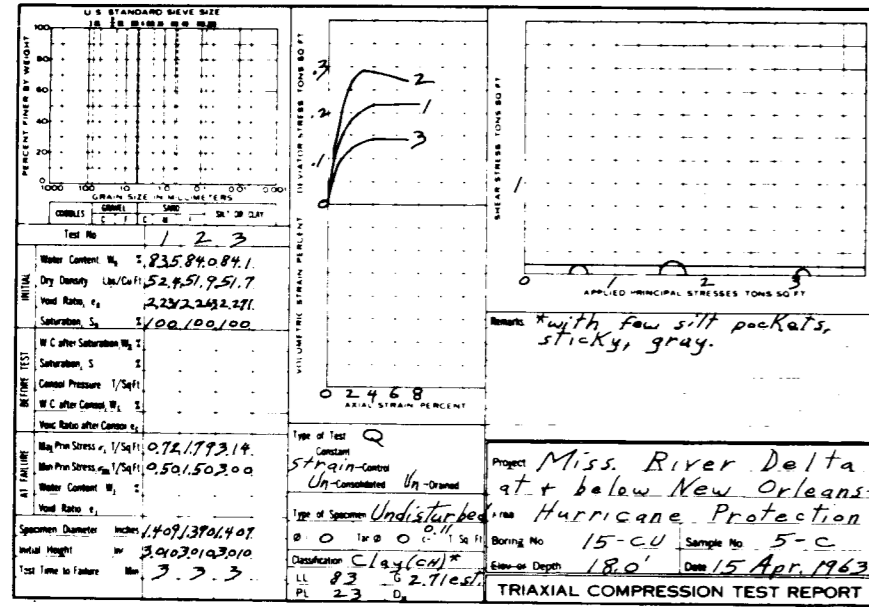 U.S. STANDARD SIEVE SIZE
PERCENT FINER BY WEIGHT
100
80
60
40
20
0
1000 100 10 1.0 0.1 0.01 0.001
GRAIN SIZE IN MILLIMETERS
COBBLES GRAVEL SAND SILT OR CLAY
C F C M F
Test No 1 2 3
INITIAL
Water Content W₀ % 83.5 84.0 84.1
Dry Density Lbs/Cu Ft 52.4 51.9 51.7
Void Ratio, e₀
Saturation, S₀ % 100 100 100
BEFORE TEST
W C after Saturation, %
Saturation, S %
Consol Pressure T/Sq Ft
W C after Consol, %
Void Ratio after Consol
AT FAILURE
Maj Prin Stress σ₁ T/Sq Ft 0.72 1.79 3.14
Min Prin Stress T/Sq Ft 0.50 1.50 3.00
Water Content W %
Void Ratio e
Specimen Diameter Inches 1.409 1.390 1.409
Initial Height In 3.010 3.010 3.010
Test Time to Failure Min 3 3 3
DEVIATOR STRESS TONS SQ FT
.3
.2
.1
0
2
1
3
VOLUMETRIC STRAIN PERCENT
0 2 4 6 8
AXIAL STRAIN PERCENT
Type of Test Q
Constant
Strain-Control
Un-Consolidated Un-Drained
Type of Specimen Undisturbed
Ø 0 Tan Ø 0 C 0.11 T Sq Ft
Classification Clay (CH)*
LL 83 G 2.71 est.
PL 23 D
SHEAR STRESS TONS SQ FT
1
0 1 2 3
APPLIED PRINCIPAL STRESSES TONS SQ FT
Remarks *with few silt pockets,
sticky, gray.
Project Miss. River Delta
at + below New Orleans-
Area Hurricane Protection
Boring No 15-CU Sample No 5-C
Elev or Depth 18.0' Date 15 Apr. 1963
TRIAXIAL COMPRESSION TEST REPORT